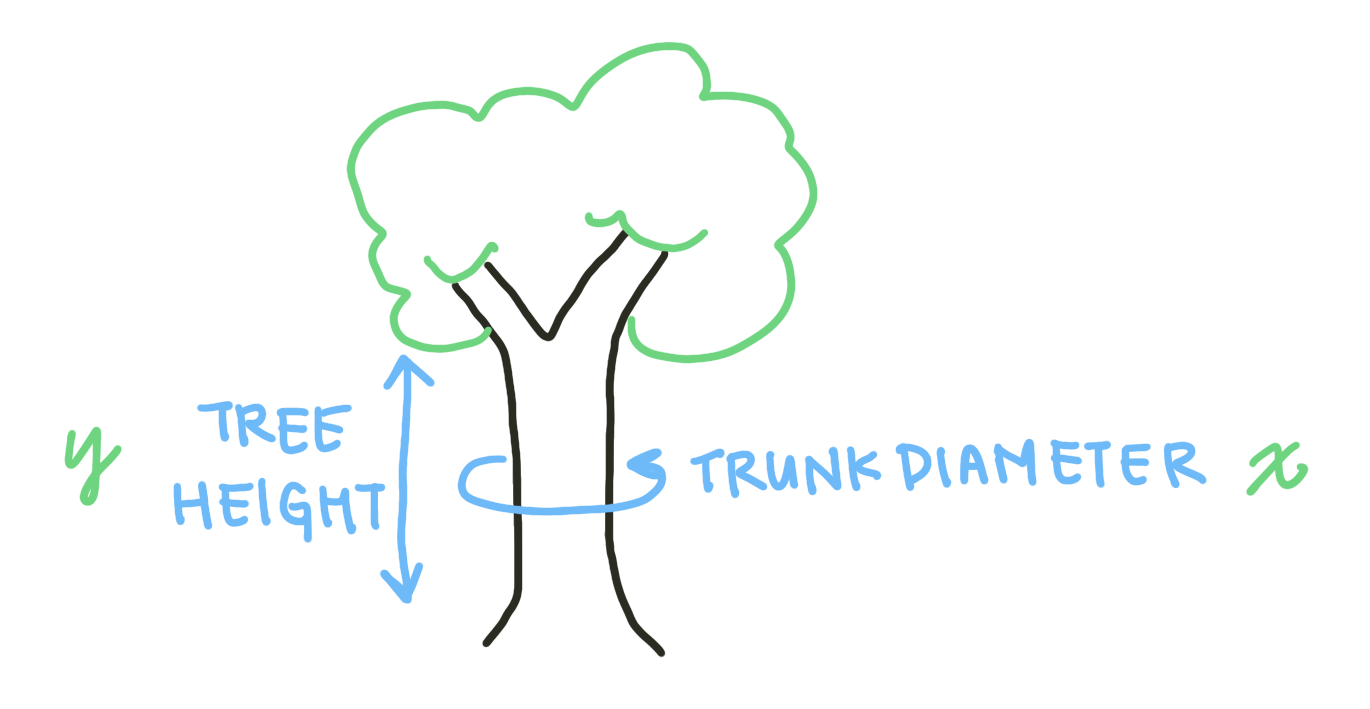 y
TREE
HEIGHT
TRUNK DIAMETER
x